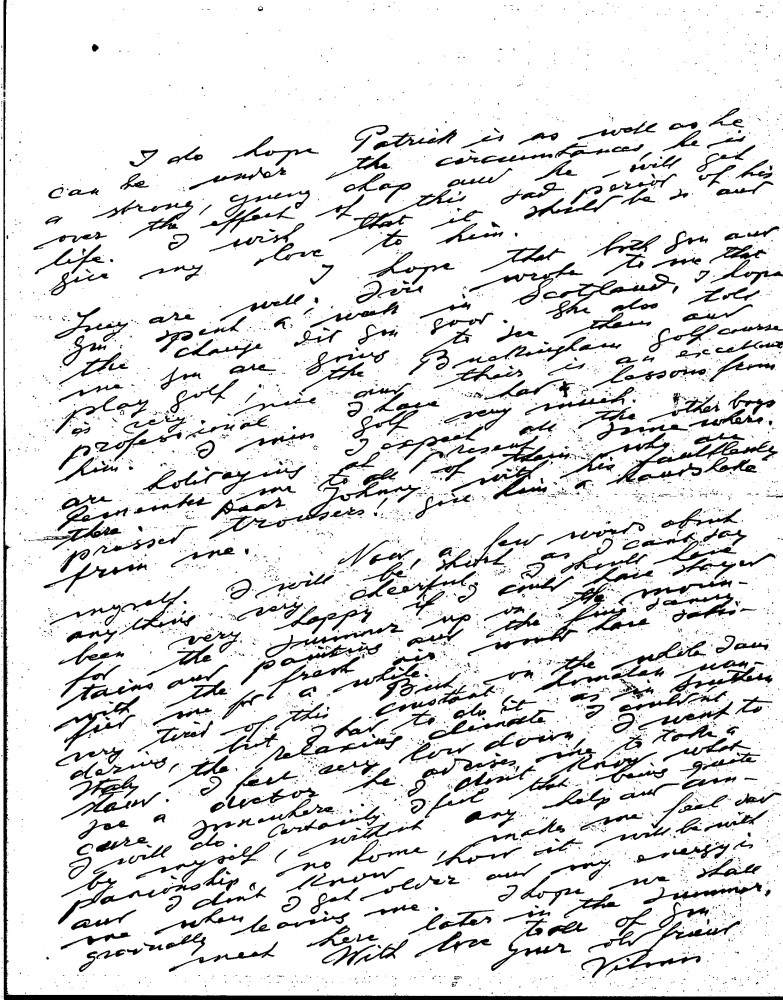 I do hope Patrick is as well as he
can be under the circumstances, he is
a strong, young chap and he will get
over the effect of this sad period of his
life. I wish that it should be so and
give my love to him.
I hope that both you and
are well. wrote to me that
you spent a week in Scotland, I hope
the change did you good. She also told
me you are going to see them and
play golf; the Buckingham golf course
is very nice and their is an excellent
professional I have had lessons from
him. I miss golf very much.
I expect all the other boys
are holidaying at present somewhere.
Remember me to all of them who are
there. Dear Johnny with his faultlessly
pressed trousers! give him a handshake
from me.
Now, a few words about
myself. I will be short as I cant say
anything very cheerful, I should have
been very happy if I could have stayed
for the summer up in the moun-
tains and painting and the fine scenery
with the fresh air would have satis-
fied me for a while. But on the while I am
very tired of this constant homeless wan-
dering, but I had to do it as in Southern
Italy the relaxing climate I couldn't
stand. I felt very low down, I went to
see a doctor he advises me to take a
cure somewhere. I don't know what
I will do. Certainly I feel that being quite
by myself, without any help and com-
panionship, no home, makes me feel sad
and I don't know how it will be with
me when I get older and my energy is
gradually leaving me. I hope we shall
meet here later in the summer.
With love to all of you
your old friend